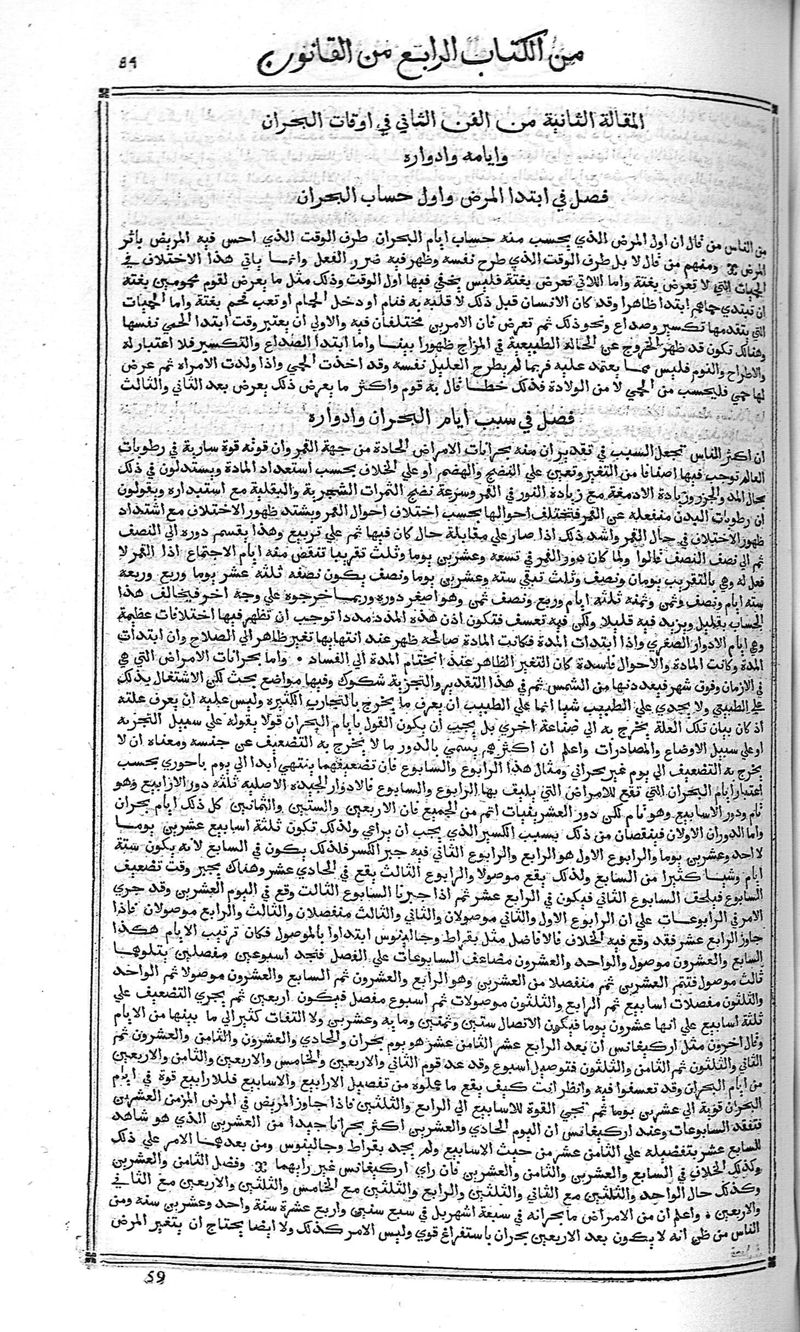 من الكتاب الرابع من القانون
٥٩
المقالة الثانية من الفن الثاني في اوقات البحران
وايامه وادواره
فصل في ابتدا المرض واول حساب البحران
من الناس من قال ان اول المرض الذي يحسب منه حساب ايام البحران طرف الوقت الذي احس فيه المريض باثر
المرض ومنهم من قال لا بل طرف الوقت الذي طرح نفسه وظهر فيه ضرر الفعل وانما ياتي هذا الاختلاف في
الحميات التي لا تعرض بغتة واما اللاتي تعرض بغتة فليس يخفي فيها اول الوقت وذلك مثل ما يعرض لقوم محمومين بغتة
ان تبتدي حماهم ابتدا ظاهرا وقد كان الانسان قبل ذلك لا قلبه به فنام او دخل الحمام او تعب فحم بغتة واما الحميات
التي يتقدمها تكسير وصداع ونحو ذلك ثم تعرض فان الامرين مختلفان فيه والاولي ان يعتبر وقت ابتدا الحمي نفسها
وهنالك تكون قد ظهر الخروج عن الحالة الطبيعية في المزاج ظهورا بينا واما ابتدا الصداع والتكسير فلا اعتبار له
والاطراح والنوم فليس مما يعتمد عليه فربما لم يطرح العليل نفسه وقد اخذت الحمي واذا ولدت الامراه ثم عرض
لها حمي فليحسب من الحمي لا من الولادة فذلك خطا قال به قوم واكثر ما يعرض ذلك يعرض بعد الثاني والثالث
فصل في سبب ايام البحران وادواره
ان اكثر الناس تجعل السبب في تقدير ازمنه بحرانات الامراض الحادة من جهة القمر وان قوته قوة سارية في رطوبات
العالم توجب فيها اصنافا من التغير وتعين علي النضج والهضم او علي الخلاف بحسب استعداد المادة ويستدلون في ذلك
بحال المد والجزر وزيادة الادمغة مع زيادة النور في القمر وسرعة نضج الثمرات الشجرية والبقلية مع استبداره ويقولون
ان رطوبات البدن منفعله عن القمر فتختلف احوالها بحسب اختلاف احوال القمر ويشتد ظهور الاختلاف مع اشتداد
ظهور الاختلاف في حال القمر واشد ذلك اذا صار علي مقابلة حال كان فيها ثم علي تربيع وهذا يقسم دوره الي النصف
ثم الي نصف النصف قالوا ولما كان دور القمر في تسعة وعشرين يوما وثلث تقريبا تنقص منه ايام الاجتماع اذا القمر لا
فعل له وهي بالتقريب يومان ونصف وثلث تبقي سته وعشرين يوما ونصف يكون نصفه ثلثه عشر يوما وربع وربعه
سته ايام ونصف وثمن وثمنه ثلثه ايام وربع ونصف ثمن وهو اصغر دوره وربما خرجوه علي وجه اخر فيخالف هذا
الحساب بقليل ويزيد فيه قليلا ولكن فيه تعسف فتكون اذن هذه المدد مددا توجب ان تظهر فيها اختلافات عظيمة
وهي ايام الادوار الصغري واذا ابتدات المدة فكانت المادة صالحه ظهر عند انتهايها تغير ظاهر الي الصلاح وان ابتدات
المدة وكانت المادة والاحوال فاسدة كان التغير الظاهر عند اختتام المدة الي الفساد واما بحرانات الامراض التي هي
في الازمان وفوق شهر فيعدونها من الشمس ثم في هذا التقدير والتجزية شكوك وفيها مواضع بحث لكن الاشتغال بذلك
علي الطبيعي ولا يجدي علي الطبيب شيا انما علي الطبيب ان يعرف ما يخرج بالتجارب الكثيره وليس عليه ان يعرف علته
اذ كان بيان تلك العلة يخرج به الي صناعة اخري بل يجب ان يكون القول بايام البحران قولا يقوله علي سبيل التجربه
او علي سبيل الاوضاع والمصادرات واعلم ان اكثرهم يسمي بالدور ما لا يخرج به التضعيف عن جنسه ومعناه ان لا
يخرج به التضعيف الي يوم غير بحراني ومثال هذا الرابوع والسابوع فان تضعيفهما ينتهي ابدا الي يوم باحوري بحسب
اعتبار ايام البحران التي تقع للامراض التي يليق بها الرابوع والسابوع فالادوار الجيده الاصليه ثلثه دور الارابيع وهو
تام ودور الاسابيع وهو تام لكن دور العشرينيات اتم من الجميع فان الاربعين والستين والثمانين كل ذلك ايام بحران
واما الدوران الاولان فينقصان من ذلك بسبب الكسر الذي يجب ان يراعي ولذلك تكون ثلثة اسابيع عشرين يوما
لا احد وعشرين يوما والرابوع الاول هو الرابع والرابوع الثاني فيه جبر الكسر فلذلك يكون في السابع لانه يكون ستة
ايام وشيا كثيرا من السابع ولذلك يقع موصولا والرابوع الثالث يقع في الحادي عشر وهناك يجبر وقت تضعيف
السابوع فيلحق السابوع الثاني فيكون في الرابع عشر ثم اذا جبرنا السابوع الثالث وقع في اليوم العشرين وقد جري
الامر في الرابوعات علي ان الرابوع الاول والثاني موصولان والثاني والثالث منفصلان والثالث والرابع موصولان فاذا
جاوز الرابع عشر فقد وقع فيه الخلاف فالافاضل مثل بقراط وجالينوس ابتداوا بالموصول فكان ترتيب الايام هكذا
السابع والعشرون موصول والواحد والعشرون مضاعف السابوعات علي الفصل فتجد اسبوعين مفصلين يتلوهما
ثالث موصول فتتم العشرين ثم منفصلا من العشرين وهو الرابع والعشرون ثم السابع والعشرون موصولا ثم الواحد
والثلثون مفصلات اسابيع ثم الرابع والثلثون موصولات ثم اسبوع مفصل فيكون اربعين ثم يجري التضعيف علي
ثلثة اسابيع علي انها عشرون يوما فيكون الاتصال ستين وثمنين ومايه وعشرين ولا التفات كثير الي ما بينها من الايام
وقال اخرون مثل اركيغانس ان بعد الرابع عشر الثامن عشر هو يوم بحران والحادي والعشرون والثامن والعشرون ثم
الثاني والثلثون ثم الثامن والثلثون فتوصيل اسبوع وقد عد قوم الثاني والاربعين والخامس والاربعين والثامن والاربعين
من ايام البحران وقد تعسفوا فيه وانظر انت كيف يقع ما عملوه من تفصيل الارابيع والاسابيع فللارابيع قوة في ايام
البحران قوية الي عشرين يوما ثم تجي القوة للاسابيع الي الرابع والثلثين فاذا جاوز المريض في المرض المزمن العشرين
فتفقد السابوعات وعند اركيغانس ان اليوم الحادي والعشرين اكثر بحرانا جيدا من العشرين الذي هو شاهد
للسابع عشر بتفضيله علي الثامن عشر من حيث الاسابيع ولم يجد بقراط وجالينوس ومن بعدهما الامر علي ذلك
وكذلك الخلاف في السابع والعشرين والثامن والعشرين فان راي اركيغانس غير رايهما وفضل الثامن والعشرين
وكذلك حال الواحد والثلثين مع الثاني والثلثين والرابع والثلثين مع الخامس والثلثين والاربعين مع الثاني
والاربعين واعلم ان من الامراض ما بحرانه في سبعة اشهر بل في سبع سنين واربع عشرة سنة واحد وعشرين سنة ومن
الناس من ظن انه لا يكون بعد الاربعين بحران باستفراغ قوي وليس الامر كذلك ولا ايضا يحتاج ان يتغير المرض
59